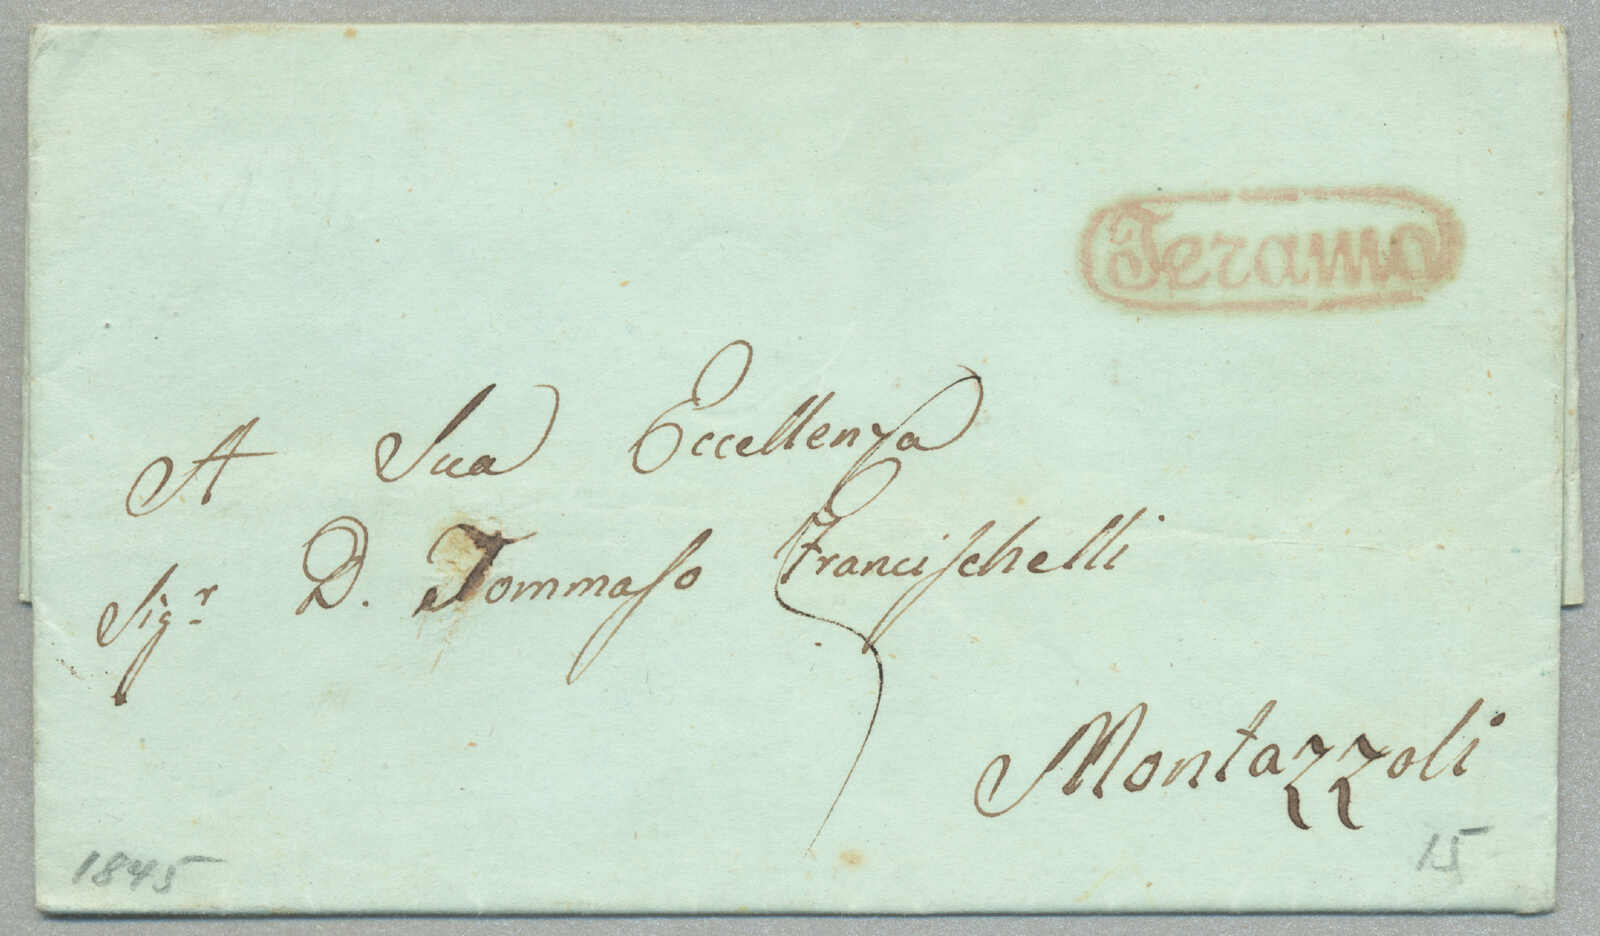 Teramo
A Sua Eccellenza
Sigr. D. Tommaso Francischelli
Montazzoli
1845
15